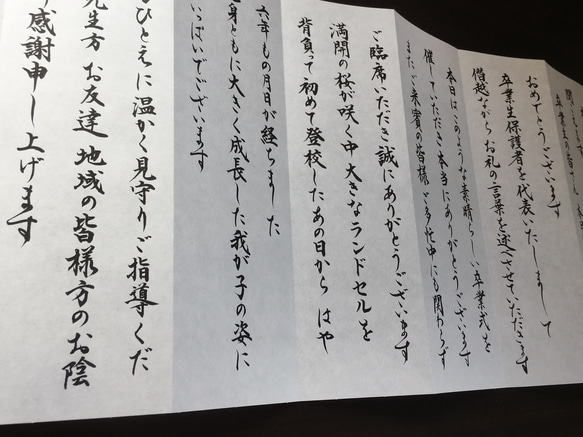 卒業生の皆さん
おめでとうございます
卒業生保護者を代表いたしまして
僭越ながらお礼の言葉を述べさせていただきます
本日はこのような素晴らしい卒業式を
催していただき本当にありがとうございます
またご来賓の皆様ご多忙中にも関わらず
ご臨席いただき誠にありがとうございます
満開の桜が咲く中大きなランドセルを
背負って初めて登校したあの日から はや
六年もの月日が経ちました
身ともに大きく成長した我が子の姿に
いっぱいでございます
ひとえに温かく見守りご指導くだ
先生方 お友達 地域の皆様方のお陰
感謝申し上げます